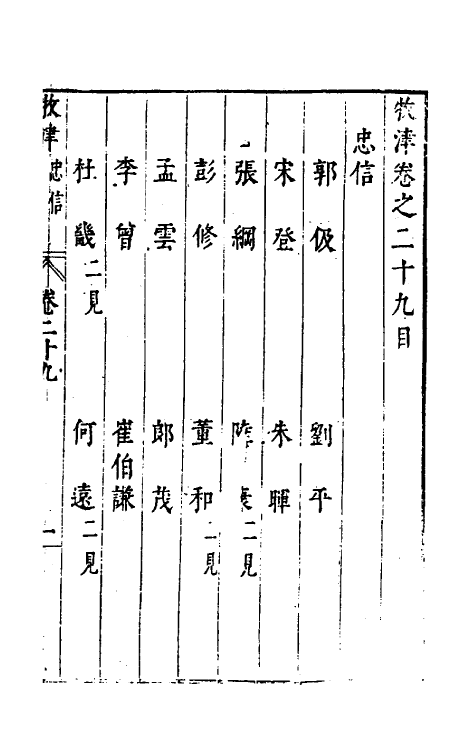 牧津卷之二十九目
忠信
郭伋 劉平
宋登 朱暉
張綱 陸襄二見
彭修 董和二見
孟雲 郎茂
李曾 崔伯謙
杜畿二見 何遠二見
牧津 忠信 卷二十九 一